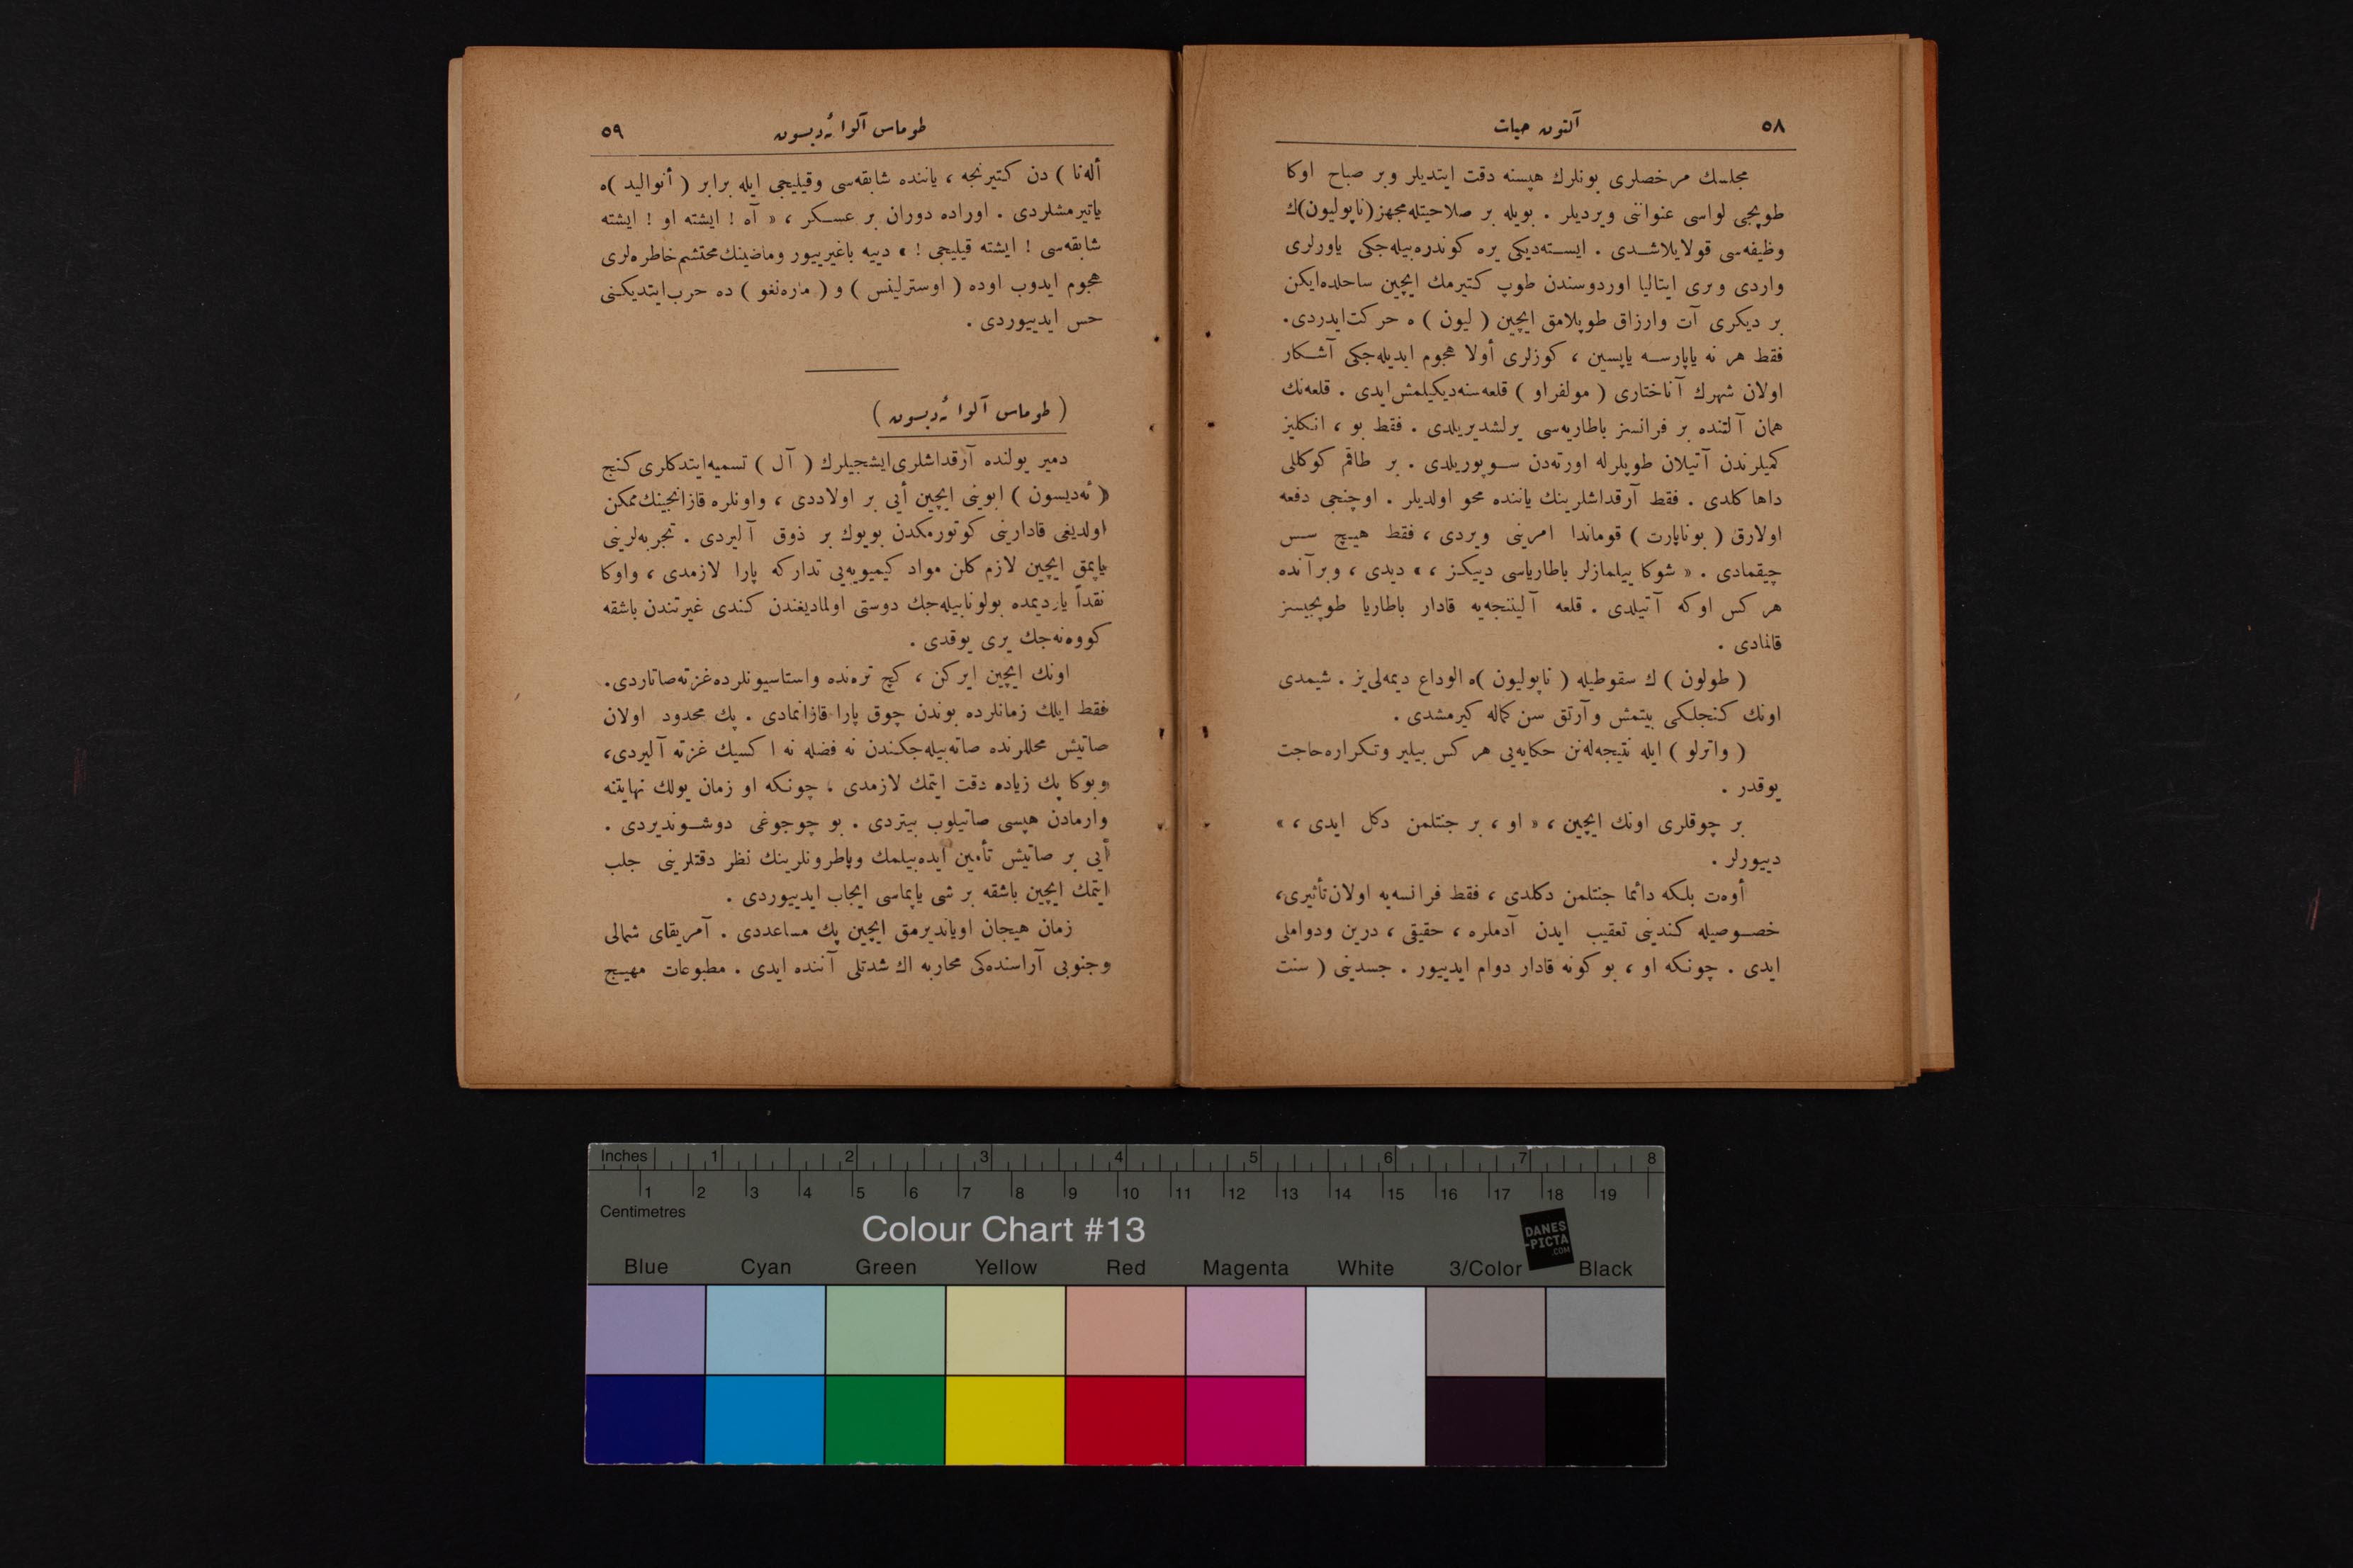 ٥٨
آلتون حیات
مجلسك مرخصلری بونلرك هپسنه دقت ایتدیلر وبر صباح اوكا
طوپجی لواسی عنواننی ویردیلر . بویله بر صلاحیتله مجهز (ناپولیون)ك
وظیفه‌سی قولایلاشـدی . ایسـته‌دیكی یره كوندره‌بیله‌جكی یاورلری
واردی وبری ایتالیا اوردوسندن طوپ كتیرمك ایچین ساحلده‌ایكن
بر دیكری آت وارزاق طوپلامق ایچین ( لیون ) ه حركت‌ایدردی.
فقط هر نه یاپارسـه یاپسین ، كوزلری أولا هجوم ایدیله‌جكی آشـكار
اولان شهرك آناختاری ( مولغراو ) قلعه‌سنه‌دیكیلمش‌ایدی . قلعه‌نك
همان آلتنده بر فرانسز باطاریه‌سی یرلشدیریلدی . فقط بو ، انكلیز
كمیلرندن آتیلان طوپلرله اورته‌دن سـوپوریلدی . بر طاقم كوكللی
داها كلدی . فقط آرقداشلرینك یاننده محو اولدیلر . اوچنجی دفعه
اولارق ( بوناپارت ) قوماندا امرینی ویردی ، فقط هیـچ سـس
چیقمادی . « شوكا ییلمازلر باطاریاسی دییكز ، » دیدی ، وبر آنده
هر كس اوكه آتیلدی . قلعه آلیننجه‌یه قادار باطاریا طوپجیسز
قالمادی .
( طولون ) ك سقوطیله ( ناپولیون )ه الوداع دیمه‌لی‌یز . شیمدی
اونك كنجلكی بیتمش وآرتق سن كماله كیرمشدی .
( واترلو ) ایله نتیجه‌له‌نن حكایه‌یی هر كس بیلیر وتكراره حاجت
یوقدر .
بر چوقلری اونك ایچین ، « او ، بر جنتلمن دكل ایدی ، »
دییورلر .
أوه‌ت بلكه دائما جنتلمن دكلدی ، فقط فرانسه‌یه اولان‌تأثیری،
خصـوصیله كندینی تعقیب ایدن آدملره ، حقیقی ، درین ودواملی
ایدی . چونكه او ، بو كونه قادار دوام ایدییور . جسدینی ( سنت
طوماس آلوا ئه‌دیسون
٥٩
أله‌نا ) دن كتیرنجه ، یاننده شابقه‌سی وقیلیجی ایله برابر ( أنوالید )ه
یاتیرمشلردی . اوراده دوران بر عسـكر ، « آه ! ایشته او ! ایشته
شابقه‌سی ! ایشته قیلیجی ! » دییه باغیرییور وماضینك‌محتشم‌خاطره‌لری
هجوم ایدوب اوده ( اوسترلیتس ) و ( ماره‌نغو ) ده حرب‌ایتدیكنی
حس ایدییوردی .
( طوماس آلوا ئه‌دیسون )
دمیر یولنده آرقداشلری‌ایشجیلرك ( آل ) تسمیه‌ایتدكلری كنج
( ئه‌دیسون ) ابوینی ایچین أیی بر اولاددی ، واونلره قازانجینك‌ممكن
اولدیغی قادارینی كوتورمكدن بویوك بر ذوق آلیردی . تجربه‌لرینی
یاپمق ایچین لازم كلن مواد كیمیویه‌یی تداركه پارا لازمدی ، واوكا
نقداً یاردیمده بولونابیله‌جك دوستی اولمادیغندن كندی غیرتندن باشقه
كووه‌نه‌جك یری یوقدی .
اونك ایچین ایركن ، كچ تره‌نده واستاسیونلرده‌غزته‌صاتاردی.
فقط ایلك زمانلرده بوندن چوق پارا قازانمادی . پك محدود اولان
صاتیش محللرنده صاته‌بیله‌جكندن نه فضله نه اكسیك غزته آلیردی،
وبوكا پك زیاده دقت ایتمك لازمدی ، چونكه او زمان یولك نهایتنه
وارمادن هپسی صاتیلوب بیتردی . بو چوجوغی دوشـوندیردی .
أیی بر صاتیش تأمین ایده‌بیلمك وپاطرونلرینك نظر دقتلرینی جلب
ایتمك ایچین باشقه بر شی یاپماسی ایجاب ایدییوردی .
زمان هیجان اویاندیرمق ایچین پك مساعددی . آمریقای شمالی
وجنوبی آراسنده‌كی محاربه اك شدتلی آننده ایدی . مطبوعات مهیـج
Inches 1 2 3 4 5 6 7 8
1 2 3 4 5 6 7 8 9 10 11 12 13 14 15 16 17 18 19
Centimetres
Colour Chart #13
DANES
-PICTA
.COM
Blue Cyan Green Yellow Red Magenta White 3/Color Black